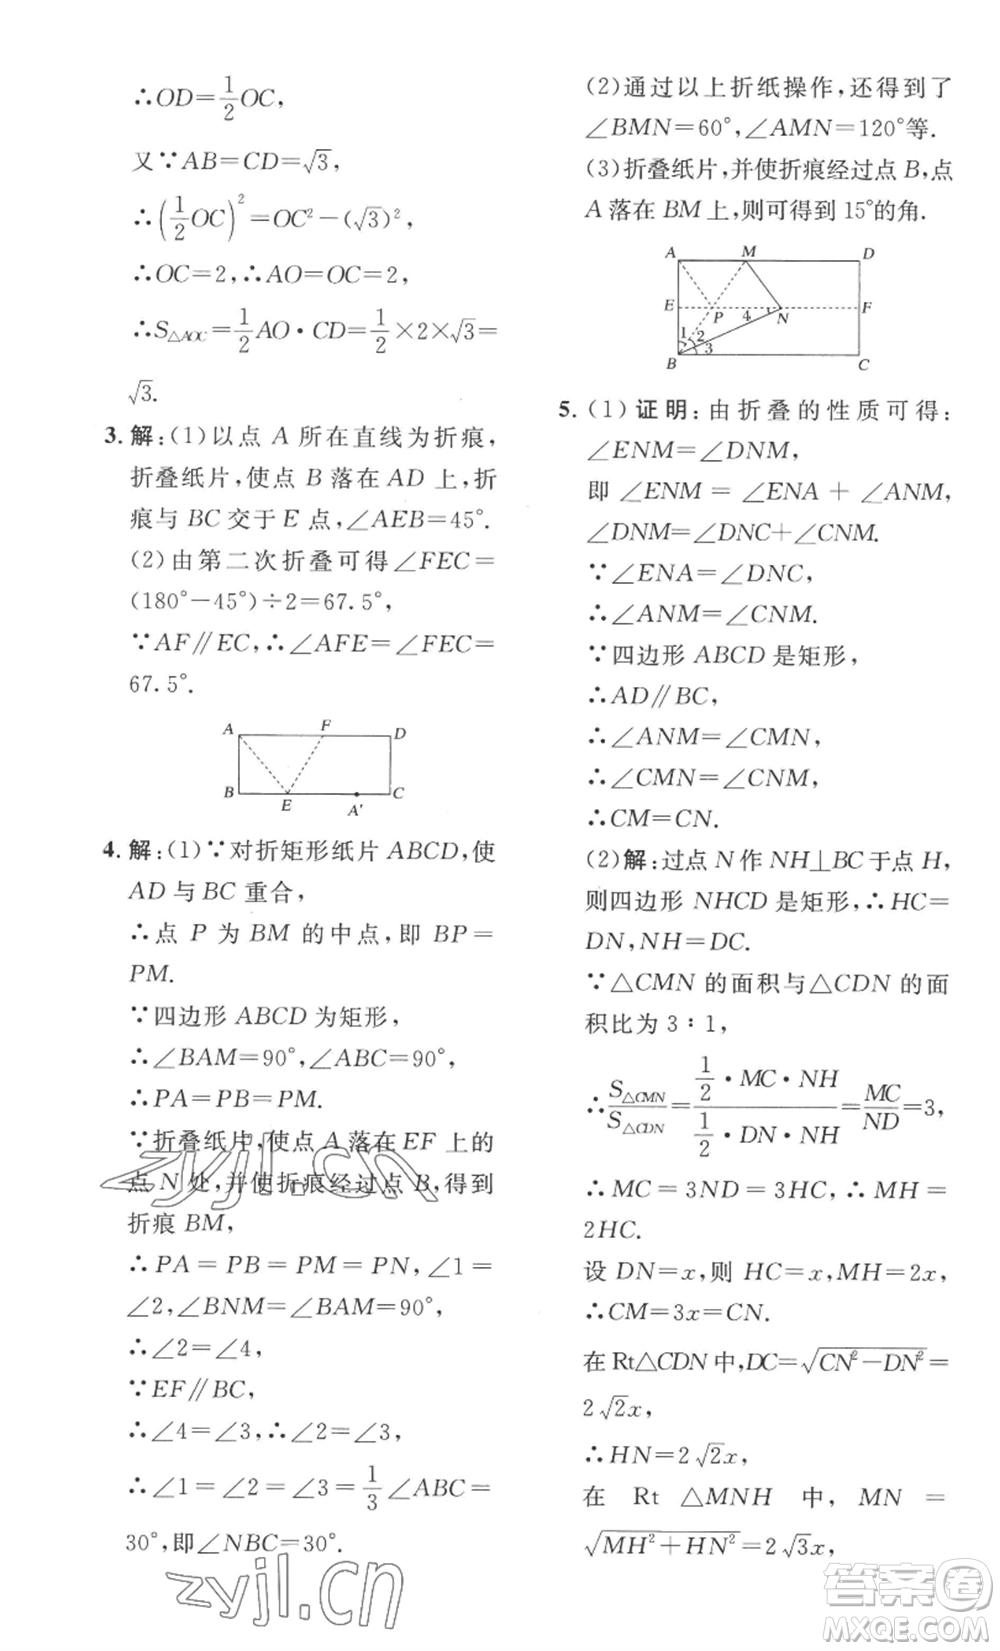 ∴OD=1/2 OC,
又∵AB=CD=√3,
∴(1/2 OC)²=OC²-(√3)²,
∴OC=2,∴AO=OC=2,
∴S△AOC=1/2 AO·CD=1/2×2×√3=
√3.
3.解:(1)以点 A 所在直线为折痕,
折叠纸片,使点 B 落在 AD 上,折
痕与 BC 交于 E 点,∠AEB=45°.
(2)由第二次折叠可得∠FEC=
(180°-45°)÷2=67.5°,
∵AF∥EC,∴∠AFE=∠FEC=
67.5°.
A F D
B E A' C
4.解:(1)∵对折矩形纸片 ABCD,使
AD 与 BC 重合,
∴点 P 为 BM 的中点,即 BP=
PM.
∵四边形 ABCD 为矩形,
∴∠BAM=90°,∠ABC=90°,
∴PA=PB=PM.
∵折叠纸片,使点 A 落在 EF 上的
点 N 处,并使折痕经过点 B,得到
折痕 BM,
∴PA=PB=PM=PN,∠1=
∠2,∠BNM=∠BAM=90°,
∴∠2=∠4,
∵EF∥BC,
∴∠4=∠3,∴∠2=∠3,
∴∠1=∠2=∠3=1/3∠ABC=
30°,即∠NBC=30°.
(2)通过以上折纸操作,还得到了
∠BMN=60°,∠AMN=120°等.
(3)折叠纸片,并使折痕经过点 B,点
A 落在 BM 上,则可得到 15°的角.
A M D
E P 4 N F
1 2 3
B C
5.(1)证明:由折叠的性质可得:
∠ENM=∠DNM,
即∠ENM=∠ENA+∠ANM,
∠DNM=∠DNC+∠CNM.
∵∠ENA=∠DNC,
∴∠ANM=∠CNM.
∵四边形 ABCD 是矩形,
∴AD∥BC,
∴∠ANM=∠CMN,
∴∠CMN=∠CNM,
∴CM=CN.
(2)解:过点 N 作 NH⊥BC 于点 H,
则四边形 NHCD 是矩形,∴HC=
DN,NH=DC.
∵△CMN 的面积与△CDN 的面
积比为 3∶1,
∴S△CMN/S△CDN=(1/2·MC·NH)/(1/2·DN·NH)=MC/ND=3,
∴MC=3ND=3HC,∴MH=
2HC.
设 DN=x,则 HC=x,MH=2x,
∴CM=3x=CN.
在 Rt△CDN 中,DC=√(CN²-DN²)=
2√2x,
∴HN=2√2x,
在 Rt △MNH 中,MN=
√(MH²+HN²)=2√3x,
zyjl.cn
zyjl.cn
答案卷
MXQE.COM